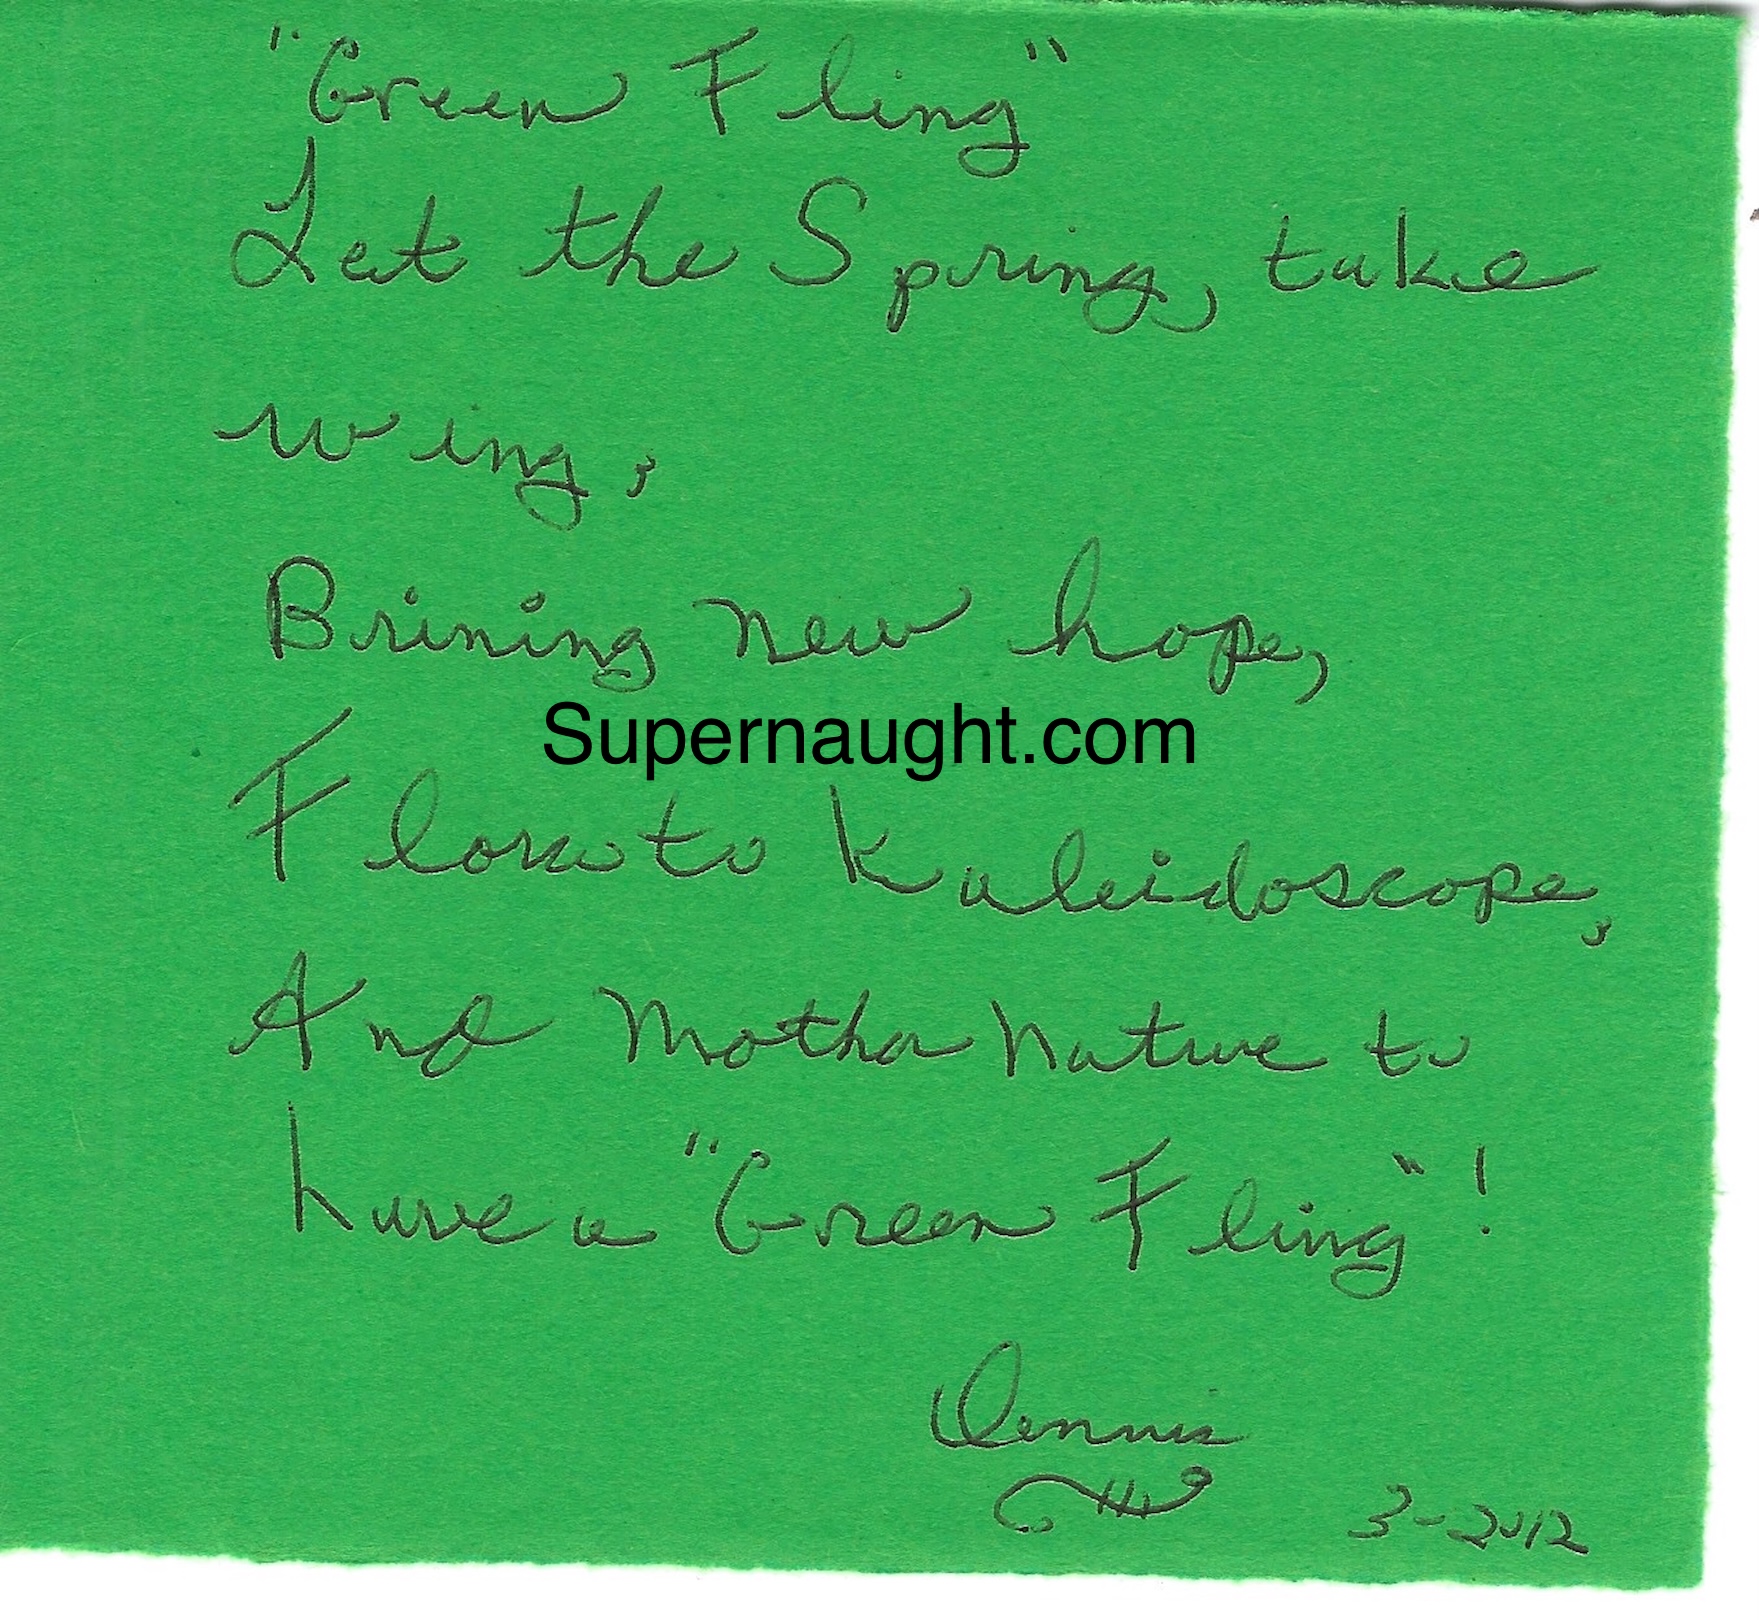 "Green Fling"
Let the Spring, take
wing,
Brining new hope,
Flora to Kaleidoscope,
And Mother Nature to
have a "Green Fling"!
Dennis
3-2012
Supernaught.com